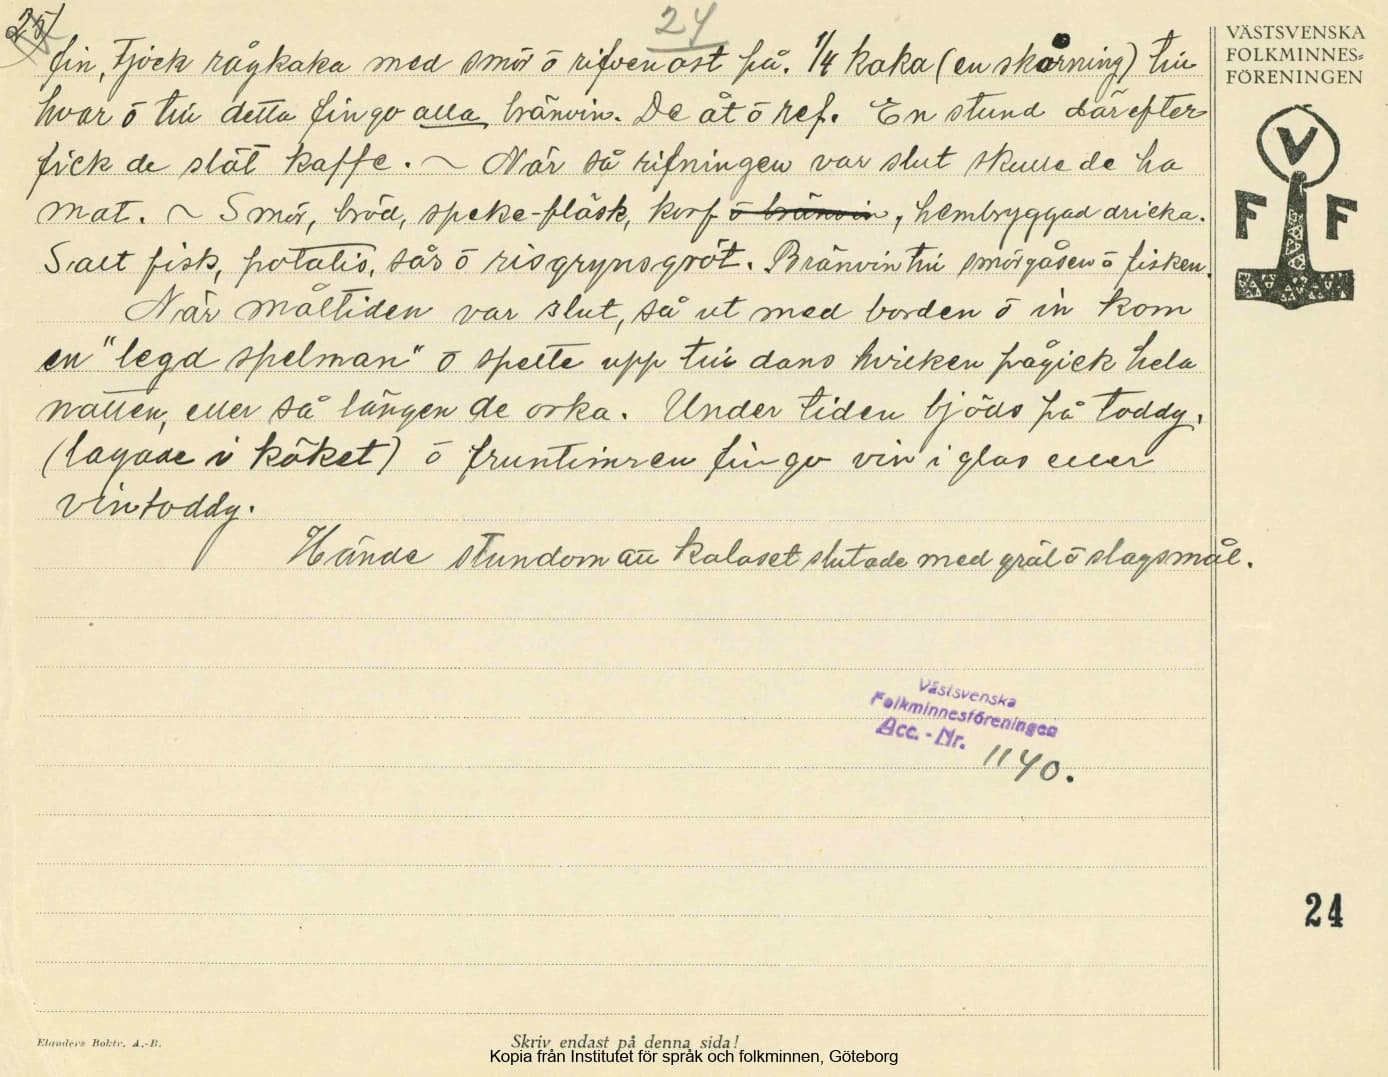 25/
24
fin, tjock rågkaka med smör ō rifven ost på. 1/4 kaka (en skörning) till
hvar ō till detta fingo alla bränvin. De åt ō ref. En stund därefter
fick de slät kaffe. ~ När så rifningen var slut skulle de ha
mat. ~ Smör, bröd, speke-fläsk, korf ō bränvin, hembryggad dricka.
Salt fisk, potatis, sås ō risgrynsgröt. Bränvin till smörgåsen ō fisken.
När måltiden var slut, så ut med borden ō in kom
en "legd spelman" ō spelte upp till dans hvilken pågick hela
natten, eller så längen de orka. Under tiden bjöds på toddy.
(lagade i köket) ō fruntimren fingo vin i glas eller
vintoddy.
Hände stundom att kalaset slutade med gräl ō slagsmål.
VÄSTSVENSKA
FOLKMINNES=
FÖRENINGEN
V
F F
Västsvenska
Folkminnesföreningen
Acc.-Nr. 1140.
24
Elanders Boktr. A.-B.
Skriv endast på denna sida!
Kopia från Institutet för språk och folkminnen, Göteborg